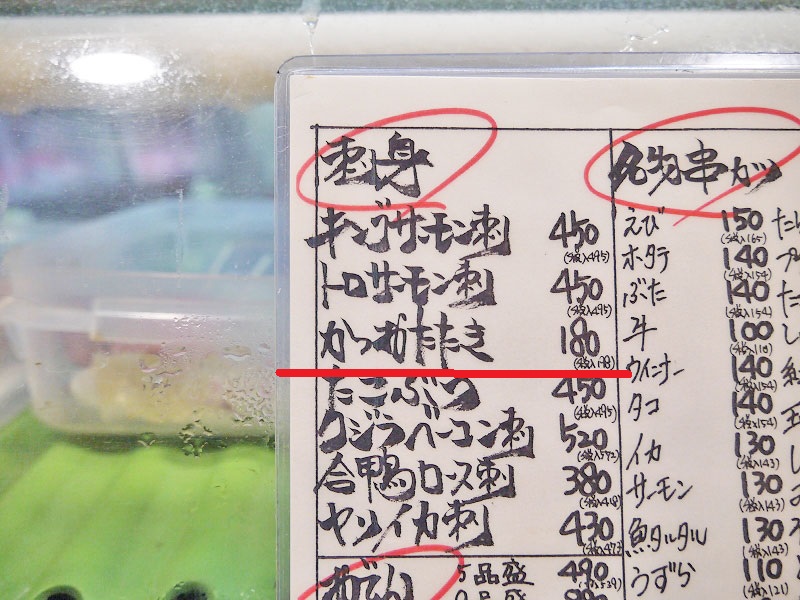 刺身
キングサーモン刺 450
(税込495)
トロサーモン刺 450
(税込495)
かつおたたき 180
(税込198)
たこぶつ 450
(税込495)
クジラベーコン刺 520
(税込572)
合鴨ロース刺 380
(税込418)
ヤリイカ刺 430
(税込473
おでん 5品盛 490
名物串カツ
えび 150
(税込165)
ホタテ 140
(税込154)
ぶた 140
(税込154)
牛 100
(税込110)
ウインナー 140
(税込154)
タコ 140
(税込154)
イカ 130
(税込143)
サーモン 130
(税込143)
魚タルタル 130
(税込143)
うずら 110
(税込121)